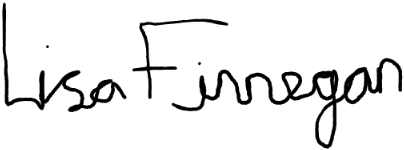 Lisa Finnegan